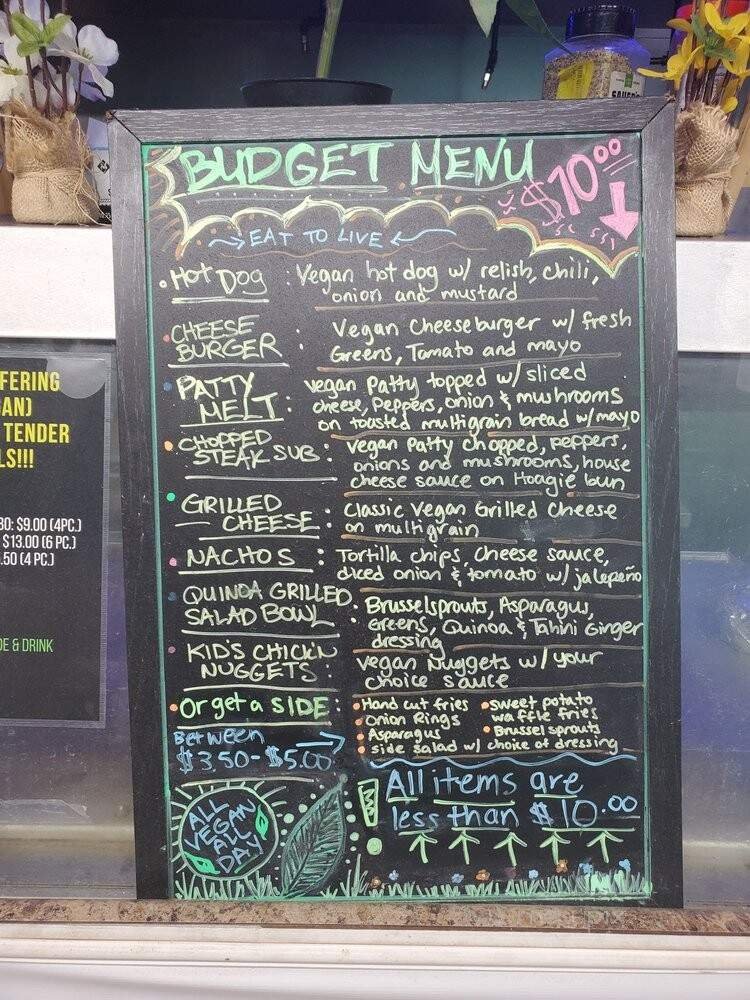 BUDGET MENU
$10⁰⁰
EAT TO LIVE
HOT DOG : Vegan hot dog w/ relish, chili,
onion and mustard
CHEESE
BURGER : Vegan Cheeseburger w/ fresh
Greens, Tomato and mayo
PATTY
MELT : vegan Patty topped w/ sliced
cheese, Peppers, onion & mushrooms
on toasted multigrain bread w/ mayo
CHOPPED
STEAK SUB : vegan Patty chopped, peppers,
onions and mushrooms, house
cheese sauce on Hoagie bun
GRILLED
CHEESE : Classic Vegan Grilled Cheese
on multigrain
NACHOS : Tortilla chips, Cheese sauce,
diced onion & tomato w/ jalepeño
QUINOA GRILLED
SALAD BOWL : Brusselsprouts, Asparagus,
Greens, Quinoa & Tahini Ginger
dressing
KID'S CHICK'N
NUGGETS : vegan Nuggets w/ your
choice sauce
Or get a SIDE :
Between
$3.50 - $5.00
Hand cut fries
Onion Rings
Asparagus
side salad w/ choice of dressing
sweet potato
waffle fries
Brussel sprouts
ALL
VEGAN
ALL
DAY
! All items are
less than $10.⁰⁰
FERING
AN)
TENDER
LS!!!
BO: $9.00 (4PC.)
$13.00 (6 PC.)
.50 (4 PC.)
DE & DRINK